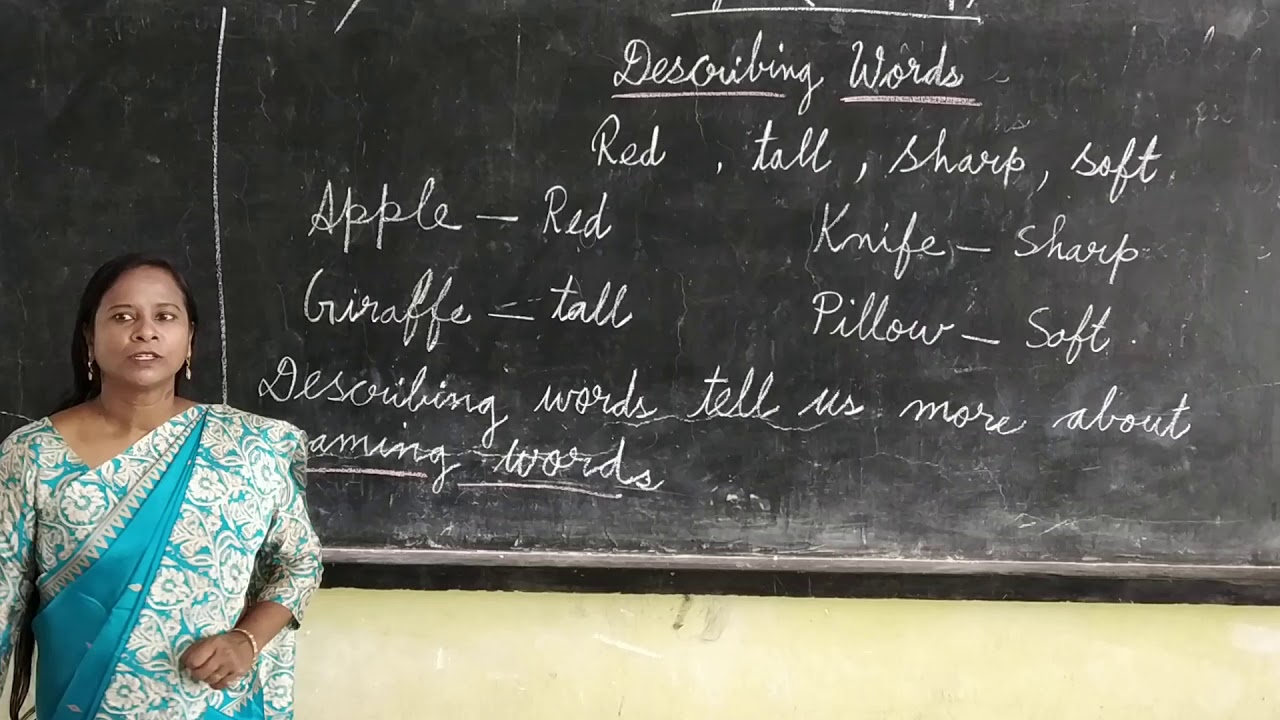 Describing Words
Red , tall , sharp, soft
Apple – Red Knife – Sharp
Giraffe – tall Pillow – Soft.
Describing words tell us more about
words